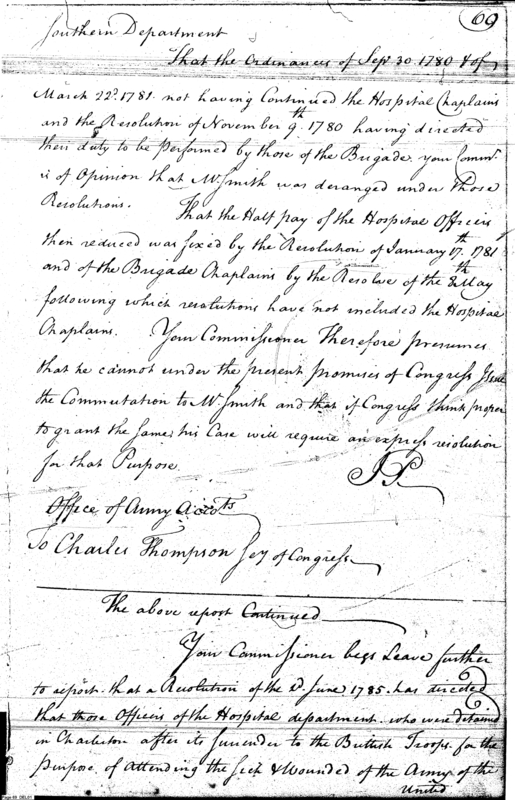 69
Southern Department
That the Ordinances of Sept 30 1780 & of
March 22d. 1781. not having Continued the Hospital Chaplains
and the Resolution of November 9th. 1780 having directed
their duty to be performed by those of the Brigade. your Commr.
is of Opinion that Mr. Smith was deranged under those
Resolutions.
That the Half pay of the Hospital Officers
then reduced was fixed by the Resolution of January 17th. 1781
and of the Brigade Chaplains by the Resolve of the 8th May
following which resolutions have not included the Hospital
Chaplains. Your Commissioner Therefore presumes
that he cannot under the present promises of Congress Issue
the Commutation to Mr. Smith and that if Congress think proper
to grant the same, his Case will require an express resolution
for that Purpose.
J P.
Office of Army Accots
To Charles Thompson Sey of Congress
The above report Continued
Your Commissioner begs Leave further
to report. that a Resolution of the 2d. June 1785. has directed
that those Officers of the Hospital department. who were detained
in Charleston after its Surrender to the British Troops. for the
Purpose of attending the Sick & Wounded of the Army of the
United
Page 69